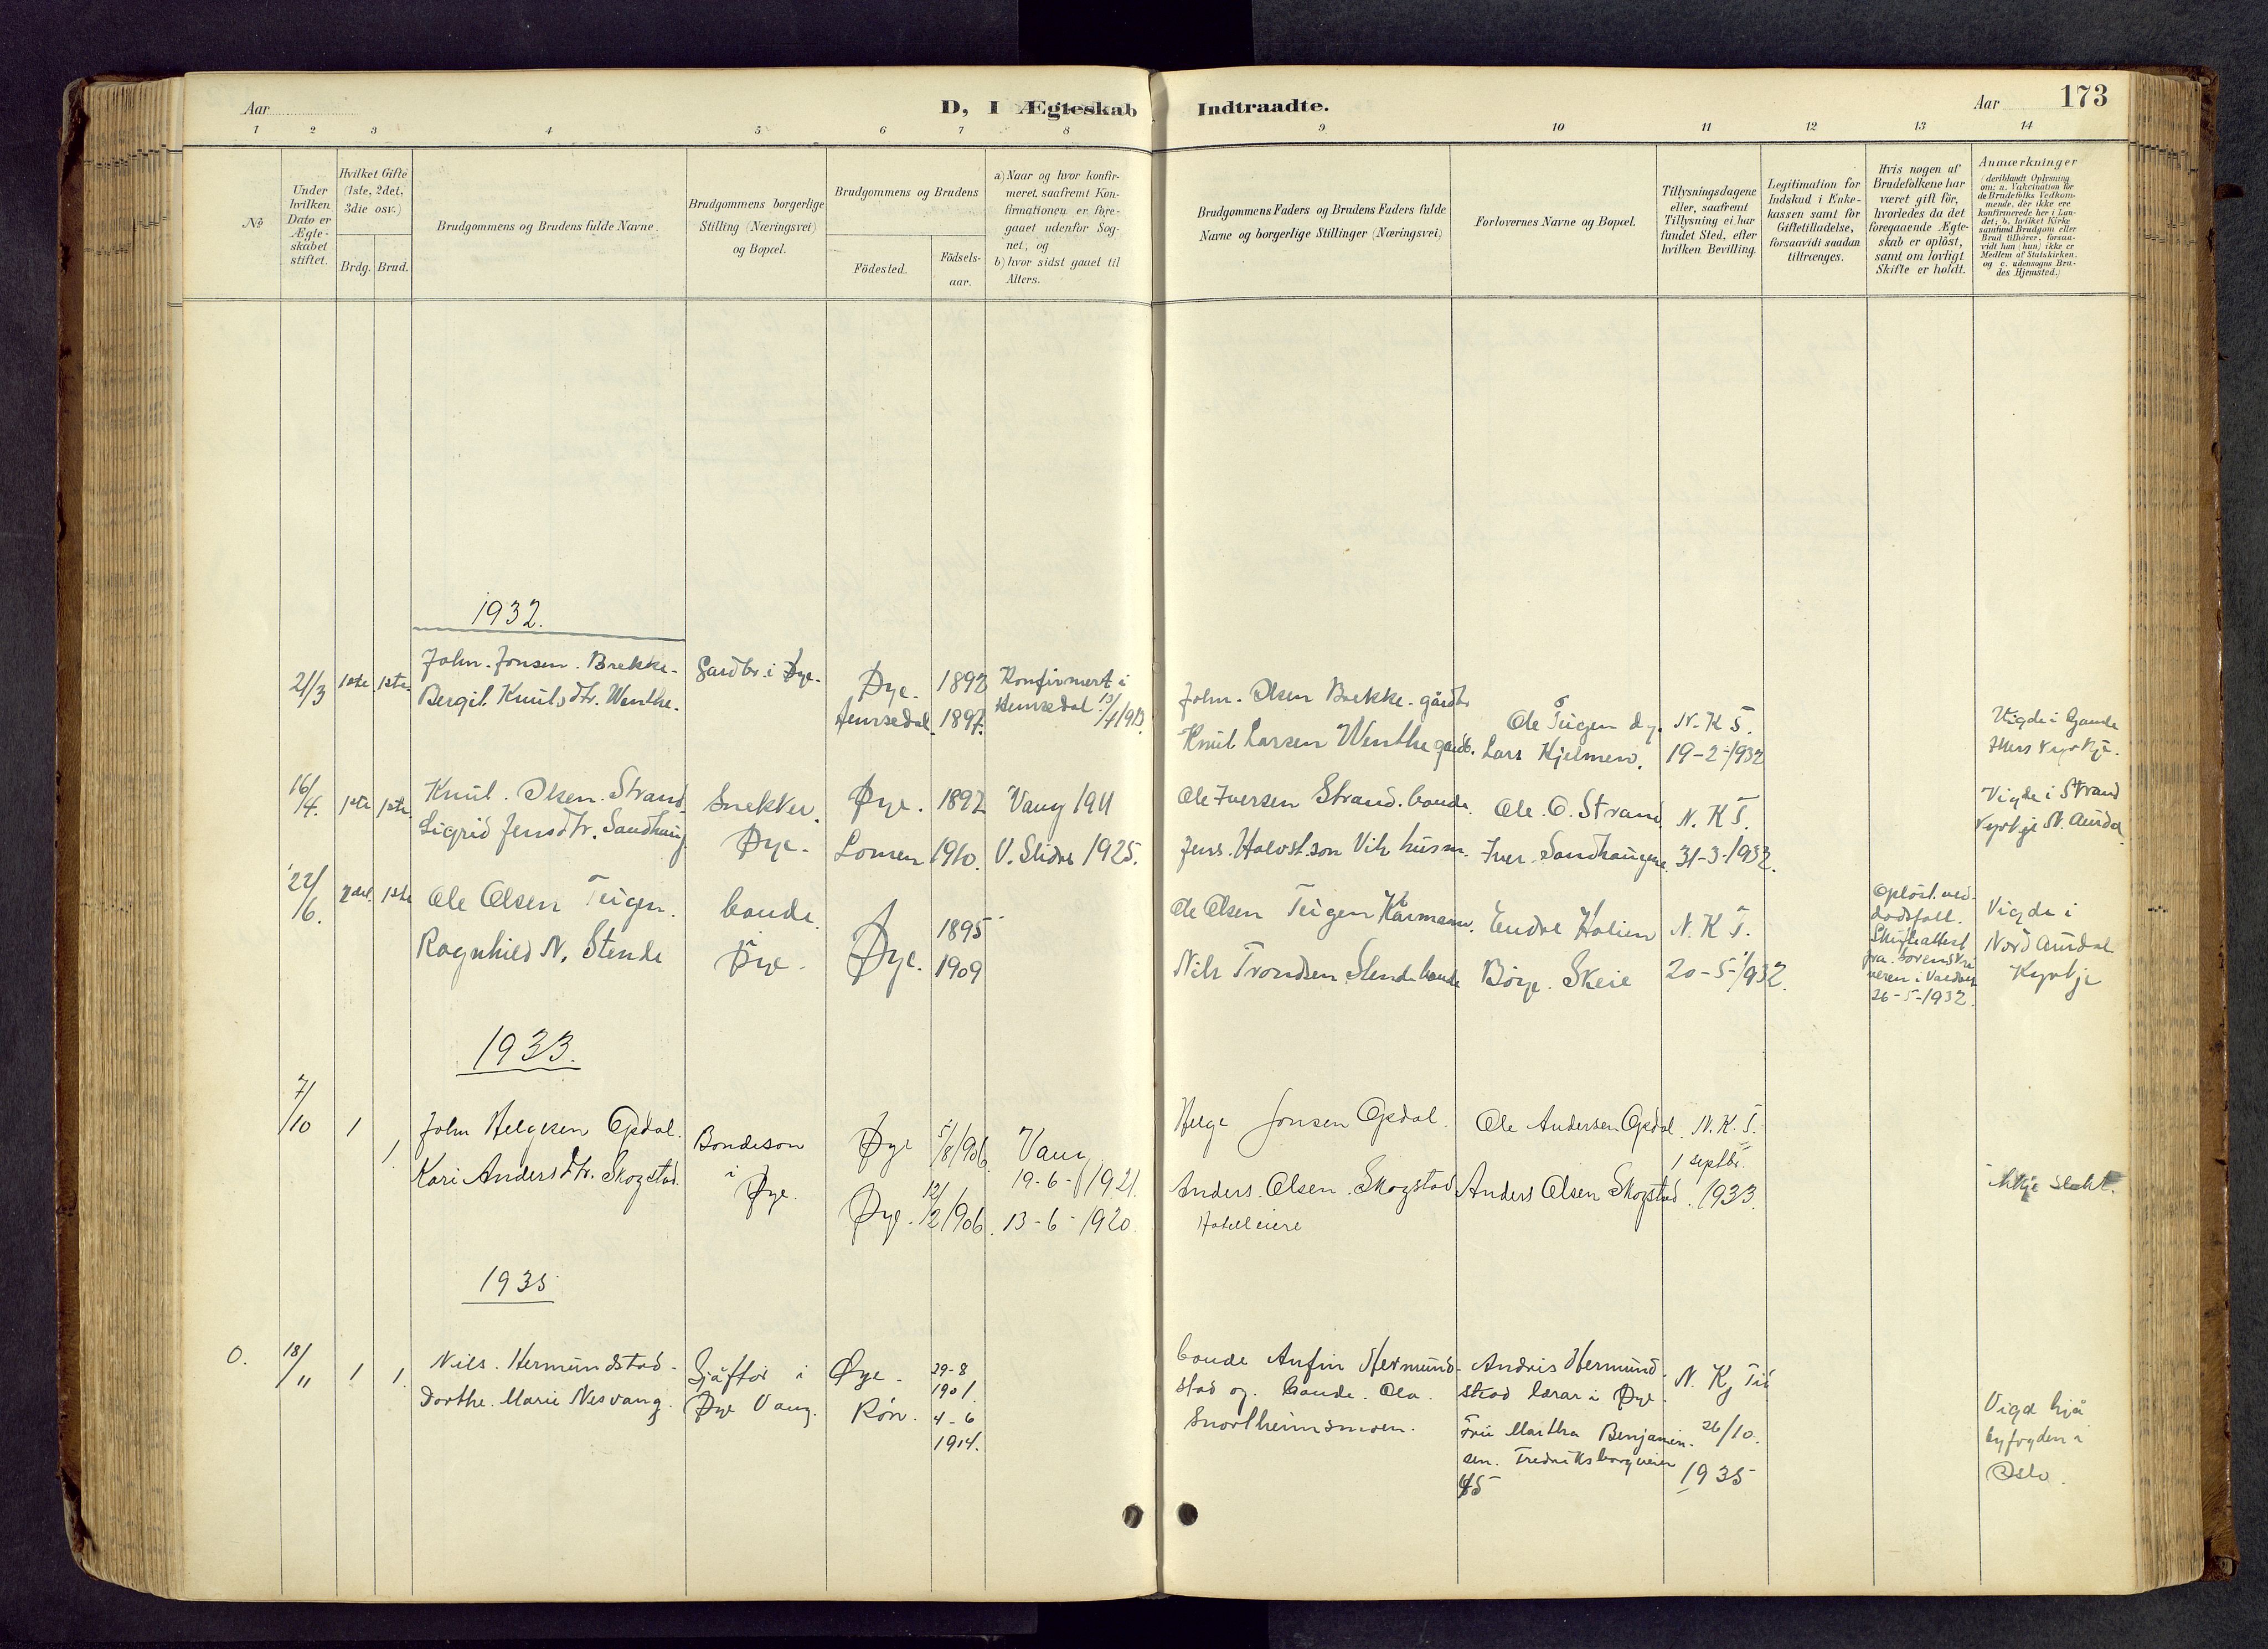 Aar
D, I Ægteskab
Indtraadte.
Aar
173
1 2 3 4 5 6 7 8 9 10 11 12 13 14
No
Under
hvilken
Dato er
Ægte-
skabet
stiftet.
Hvilket Gifte
(1ste, 2det,
3die osv.)
Brdg. Brud.
Brudgommens og Brudens fulde Navne.
Brudgommens borgerlige
Stilling (Næringsvei)
og Bopæl.
Brudgommens og Brudens
Fødested.
Fødsels-
aar.
a) Naar og hvor konfir-
meret, saafremt Kon-
firmationen er fore-
gaaet udenfor Sog-
net, og
b) hvor sidst gaaet til
Alters.
Brudgommens Faders og Brudens Faders fulde
Navne og borgerlige Stillinger (Næringsvei)
Forlovernes Navne og Bopæl.
Tillysningsdagene
eller, saafremt
Tillysning ei har
fundet Sted, efter
hvilken Bevilling.
Legitimation for
Indskud i Enke-
kassen samt for
Giftetilladelse,
forsaavidt saadan
tiltrænges.
Hvis nogen af
Brudefolkene har
været gift før,
hvorledes da det
foregaaende Ægte-
skab er opløst,
samt om lovligt
Skifte er holdt.
Anmærkninger
(deriblandt Oplysning
om: a. Vakcination for
de Brudefolks Vedkom-
mende, der ikke ere
konfirmerede her i Lan-
det; b. hvilket Kirke
samfund Brudgom eller
Brud tilhører, forsaa-
vidt han (hun) ikke er
Medlem af Statskirken.
og c. udensogns Bru-
des Hjemsted.)
1932.
21/3 1ste 1ste
John. Jonsen. Brekke.
Bergit Knutsdtr. Wenthe.
Gardbr. i Øye.
Øye. 1892
Hemsedal. 1897.
Konfirmert i
Hemsedal 13/4 1913.
John. Olsen Brekke. gårdbr
Knut Larsen Wenthe gardb.
Ole Teigen Øy.
Lars Hjelmen.
N. K. T.
19-2-1932
Vigde i
16/4. 1ste 1ste.
Knut. Olsen. Strand
Sigrid Jensdtr. Sandhaug
Snekker.
Øye.
Øye. 1892
Lomen 1910.
Vang 1911
V. Slidre 1925.
Ole Iversen Strand. bonde.
Jens. Halvst.son Vik husm.
Ole. O. Strand
Iver. Sandhaugen.
N. K T.
31-3-1932.
Vigde i Strand
Kyrkje N. Aurdal
22/6. 2det. 1ste
Ole Olsen Teigen.
Ragnhild N. Stende
bonde.
Øye.
Øye.
1895
1909
Ole Olsen Teigen Kårmann.
Nils Trondsen Stende bonde
Endre Holien
Børge. Skeie
N. K T.
20-5-1932.
Opløst ved
dødsfall.
Skifteattest
fra. sorenskri
veren i Valdres
26-5-1932.
Vigde i
Nord Aurdal
Kyrkje
1933.
7/10 1 1
John Helgesen Opdal.
Kari Andersdtr. Skogstad.
Bondeson
i
Øye.
Øye 5/8 1906
Øye. 12/2 1906.
Vang
19-6-1921.
13-6-1920.
Helge Jonsen Opdal.
Anders. Olsen. Skogstad
Hotelleiere
Ole Andersen Opdal.
Anders Olsen Skogstad.
N. K. T.
1 septbr.
1933.
ikkje slekt.
1935
0. 18/11 1 1.
Nils. Hermundstad.
Dorthe. Marie Nesvang.
Sjåfør i
Øye Vang.
Øye.
Røn.
29-8
1901.
4-6
1914.
bonde Anfin Hermund-
stad og. bonde. Ola.
Snortheimsmoen.
Andris Hermund.
stad lærar i Øye.
Fru Martha Benjamin-
sen. Fredriksborgveien
45
N. Kj Tid
26/10.
1935
Vigd hjå
byfogden i
Oslo.